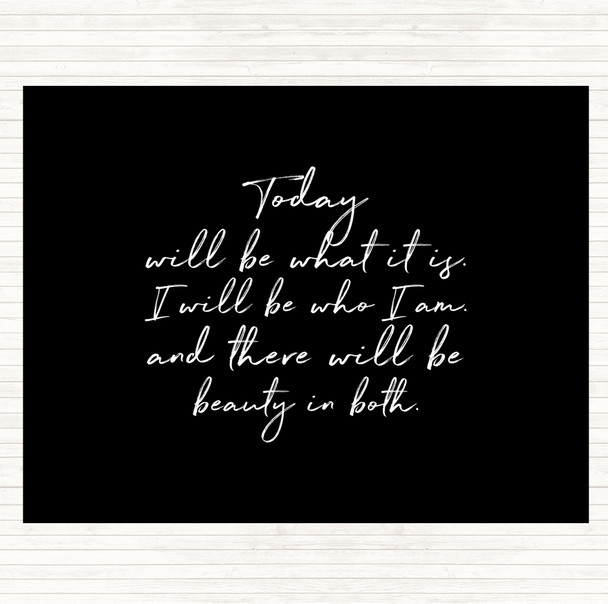 Today
will be what it is.
I will be who I am.
and there will be
beauty in both.